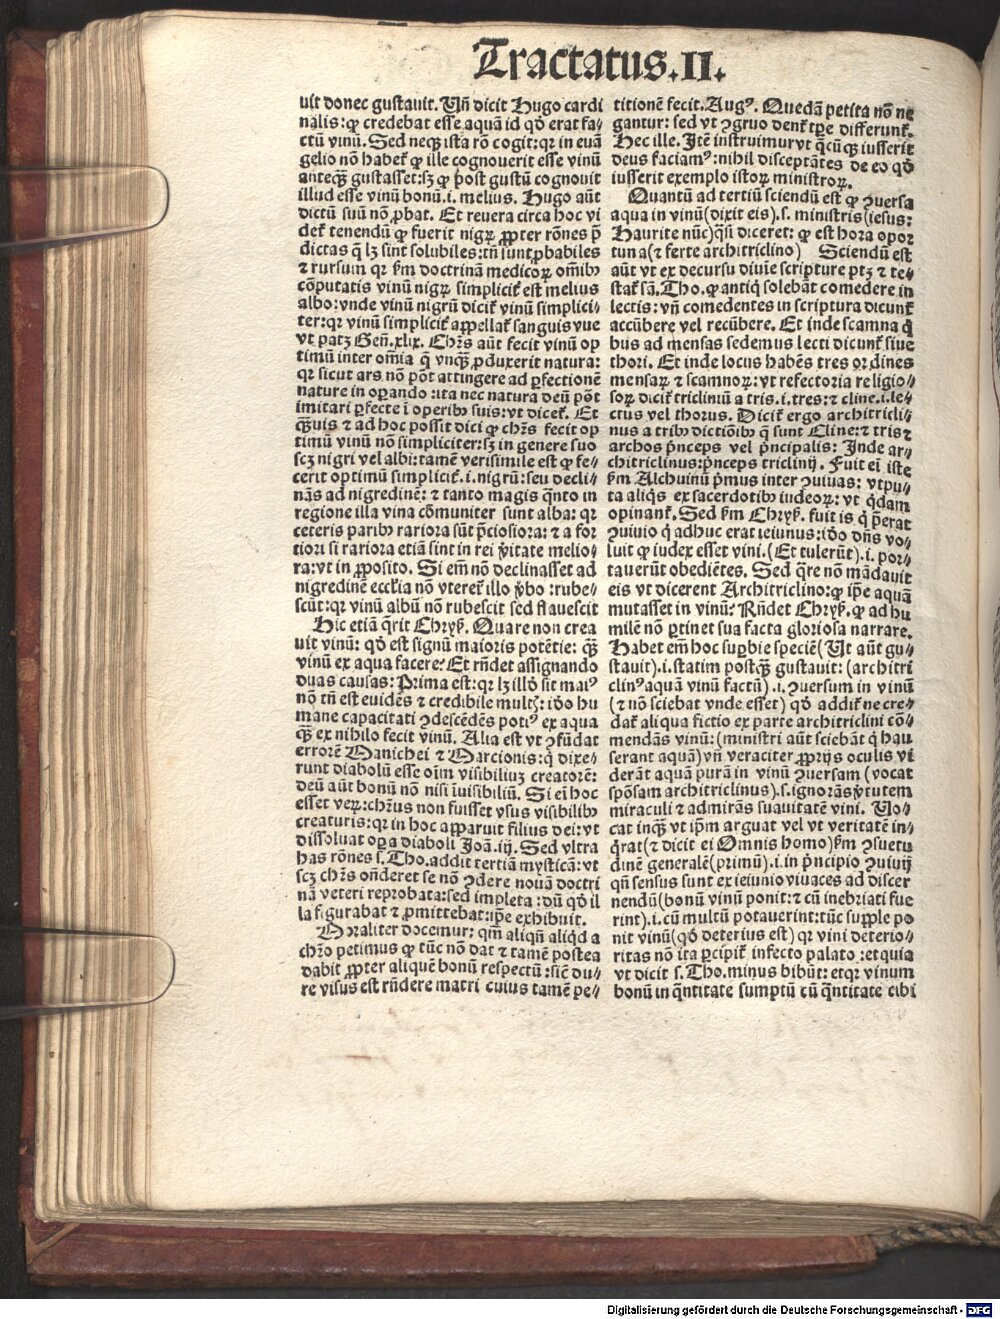 Tractatus.II.
uit donec gustauit. Vñ dicit Hugo cardi
nalis: ꝙ credebat esse aquã id qđ erat fa⸗
ctũ vinũ. Sed neqꝫ ista rõ cogit: qꝛ in euã
gelio nõ habet̃ ꝙ ille cognouerit esse vinũ
anteqꝫ̃ gustasset: sꝫ ꝙ post gustũ cognouit
illud esse vinũ bonũ .i. melius. Hugo aũt
dictũ suũ nõ ꝓbat. Et reuera circa hoc vi
det̃ tenendũ ꝙ fuerit nigꝝ ꝓpter rõnes p̃
dictas q̃ lꝫ sint solubiles: tñ sunt ꝓbabiles
⁊ rursum qꝛ ẜm doctrinã medicoꝝ om̃ibꝰ
cõputatis vinũ nigꝝ simplicit̃ est melius
albo: vnde vinũ nigrũ dicit̃ vinũ simplici⸗
ter: qꝛ vinũ simplicit̃ appellat̃ sanguis vue
vt patꝫ Geñ. xlix. Chr̃s aũt fecit vinũ op
timũ inter om̃ia q̃ vnqꝫ̃ ꝓduxerit natura:
qꝛ sicut ars nõ põt attingere ad ꝑfectionẽ
nature in oꝑando: ita nec natura deũ põt
imitari ꝑfecte ĩ operibꝰ suis: vt dicet̃. Et
qꝫ̃uis ⁊ ad hoc possit dici ꝙ chr̃s fecit op
timũ vinũ nõ simpliciter: sꝫ in genere suo
scꝫ nigri vel albi: tamẽ verisimile est ꝙ fe⸗
cerit optimũ simplicit̃ .i. nigrũ: seu decli⸗
nãs ad nigredinẽ: ⁊ tanto magis q̃nto in
regione illa vina cõmuniter sunt alba: qꝛ
ceteris paribꝰ rariora sũt p̃ciosiora: ⁊ a for
tiori si rariora etiã sint in rei v̓itate melio⸗
ra: vt in ꝓposito. Si em̃ nõ declinasset ad
nigredinẽ eccľia nõ vteret̃ illo v̓bo: rube⸗
scũt: qꝛ vinũ albũ nõ rubescit sed flauescit
Hic etiã q̃rit Chryẜ. Quare non crea
uit vinũ: qđ est signũ maioris potẽtie: qꝫ̃
vinũ ex aqua facere? Et rñdet assignando
duas causas: Prima est: qꝛ lꝫ illđ sit maiꝰ
nõ tñ est euidẽs ⁊ credibile multꝭ: iđo hu
mane capacitati ꝯdescẽdẽs potiꝰ ex aqua
qꝫ̃ ex nihilo fecit vinũ. Alia est vt ꝯfũdat
errorẽ Manichei ⁊ Marcionis: q̇ dixe⸗
runt diabolũ esse oĩm visibiliuꝫ creatorẽ:
deũ aũt bonũ nõ nisi ĩuisibiliũ. Si eĩ hoc
esset veꝝ: chr̃us non fuisset vsus visibilibꝰ
creaturis: qꝛ in hoc apparuit filius dei: vt
dissoluat oꝑa diaboli Joã. iij. Sed vltra
has rõnes s. Tho. addit tertiã mysticã: vt
scꝫ chr̃s oñderet se nõ ꝯdere nouã doctri
nã veteri reprobata: sed impleta: dũ qđ il
la figurabat ⁊ ꝓmittebat: ip̃e exhibuit.
Moraliter docemur: qm̃ aliqñ aliqđ a
chr̃o petimus ꝙ tũc nõ dat ⁊ tamẽ postea
dabit ꝓpter aliquẽ bonũ respectũ: sic̃ du⸗
re visus est rñdere matri cuius tamẽ pe⸗
titionẽ fecit. Augꝰ. Quedã petita nõ ne
gantur: sed vt ꝯgruo dent̃ tp̃e differunt̃.
Hec ille. Itẽ instruimur vt q̇cũqꝫ iusserit
deus faciamꝰ: nihil disceptãtes de eo qđ
iusserit exemplo istoꝝ ministroꝝ.
Quantũ ad tertiũ sciendũ est ꝙ ꝯuersa
aqua in vinũ (dixit eis) .s. ministris (iesus:
Haurite nũc) q̃si diceret: ꝙ est hora opor
tuna (⁊ ferte architriclino) Sciendũ est
aũt vt ex decursu diuĩe scripture ptꝫ ⁊ te⸗
stat̃ sã. Tho. ꝙ antiq̇ solebãt comedere in
lectis: vñ comedentes in scriptura dicunt̃
accũbere vel recũbere. Et inde scamna q̇
bus ad mensas sedemus lecti dicunt̃ siue
thori. Et inde locus habẽs tres ordines
mensaꝝ ⁊ scamnoꝝ: vt refectoria religio⸗
soꝝ dicit̃ tricliniũ a tris .i. tres: ⁊ cline .i. le⸗
ctus vel thorus. Dicit̃ ergo architricli⸗
nus a tribꝰ dictiõibꝰ q̃ sunt Cline: ⁊ tris ⁊
archos p̓nceps vel p̓ncipalis: Inde ar⸗
chitriclinus: p̓nceps triclinij. Fuit eĩ iste
ẜm Alchuinũ p̓mus inter ꝯuiuas: vtpu⸗
ta aliq̇s ex sacerdotibꝰ iudeoꝝ: vt q̇dam
opinant̃. Sed ẜm Chryẜ. fuit is q̇ p̃erat
ꝯuiuio q̇ adhuc erat ieiunus: iđo dñs vo⸗
luit ꝙ iudex esset vini. (Et tulerũt) .i. por⸗
tauerũt obediẽtes. Sed q̃re nõ mãdauit
eis vt dicerent Architriclino: ꝙ ip̃e aquã
mutasset in vinũ? Rñdet Chryẜ. ꝙ ad hu
milẽ nõ ꝑtinet sua facta gloriosa narrare.
Habet em̃ hoc suꝑbie speciẽ (Vt aũt gu⸗
stauit) .i. statim postqꝫ̃ gustauit: (architri
clinꝰ aquã vinũ factũ) .i. ꝯuersum in vinũ
(⁊ nõ sciebat vnde esset) qđ addit̃ ne cre⸗
dat̃ aliqua fictio ex parte architriclini cõ⸗
mendãs vinũ: (ministri aũt sciebãt q̇ hau
serant aquã) vñ veraciter ꝓprijs oculis vi
derãt aquã purã in vinũ ꝯuersam (vocat
spõsam architriclinus) .s. ignorãs v̓tutem
miraculi ⁊ admirãs suauitatẽ vini. Vo⸗
cat inqꝫ̃ vt ip̃m arguat vel vt veritatẽ in⸗
q̇rat (⁊ dicit ei Omnis homo) ẜm ꝯsuetu
dinẽ generalẽ (primũ) .i. in p̓ncipio ꝯuiuij
qñ sensus sunt ex ieiunio viuaces ad discer
nendũ (bonũ vinũ ponit: ⁊ cũ inebriati fue
rint) .i. cũ multũ potauerint: tũc supple po
nit vinũ (qđ deterius est) qꝛ vini deterio⸗
ritas nõ ita ꝑcipit̃ infecto palato: et quia
vt dicit s. Tho. minus bibũt: et qꝛ vinum
bonũ in q̃ntitate sumptũ cũ q̃ntitate cibi
Digitalisierung gefördert durch die Deutsche Forschungsgemeinschaft - DFG